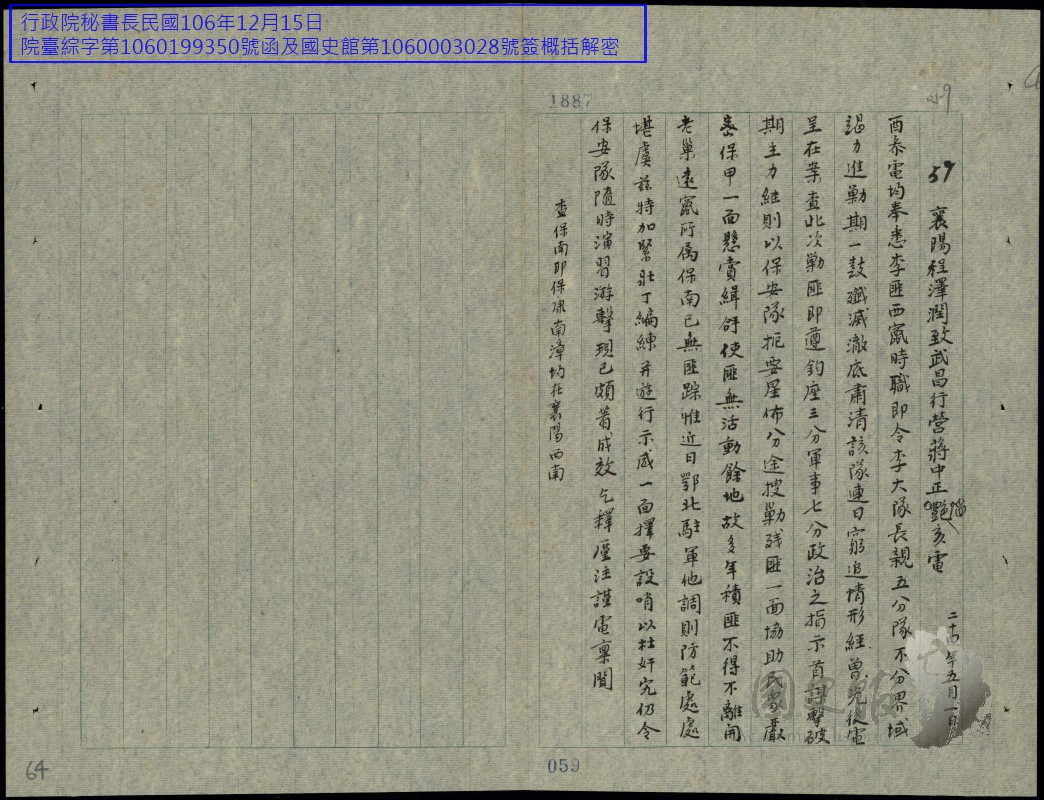 行政院秘書長民國106年12月15日
院臺綜字第1060199350號函及國史館第1060003028號簽概括解密
1887
59
59 襄陽程澤潤致武昌行營蔣中正艷亥電 二十四年五月一日
酉泰電均奉悉李匪西竄時職即令李大隊長親五分隊不分界域
竭力進勦期一鼓殲滅澈底肅清該隊連日窮追情形經曾先後電
呈在案查此次勦匪即遵鈞座三分軍事七分政治之指示首謀擊破
期主力繼則以保安隊扼要星佈分途搜勦殘匪一面協助民眾嚴
密保甲一面懸賞緝辦使匪無活動餘地故多年積匪不得不離開
老巢遠竄所屬保南已無匪踪惟近日鄂北駐軍他調則防範處處
堪虞茲特加緊壯丁編練并遊行示威一面擇要設哨以杜奸宄仍令
保安隊隨時演習游擊現已頗著成效乞釋厪注謹電稟聞
查保南即保康南漳均在襄陽西南
國史館
059
64